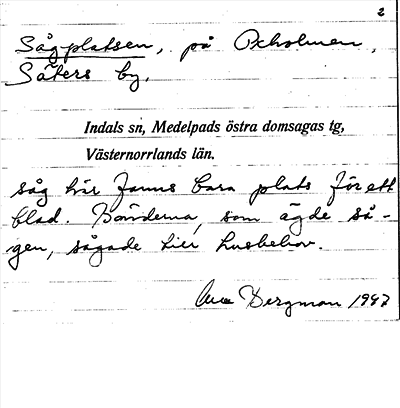 2
Sågplatsen, på Oxholmen,
Säters by.
Indals sn, Medelpads östra domsagas tg,
Västernorrlands län.
såg här fanns bara plats för ett
blad. Bönderna, som ägde så-
gen, sågade till husbehov.
Bergman 1947